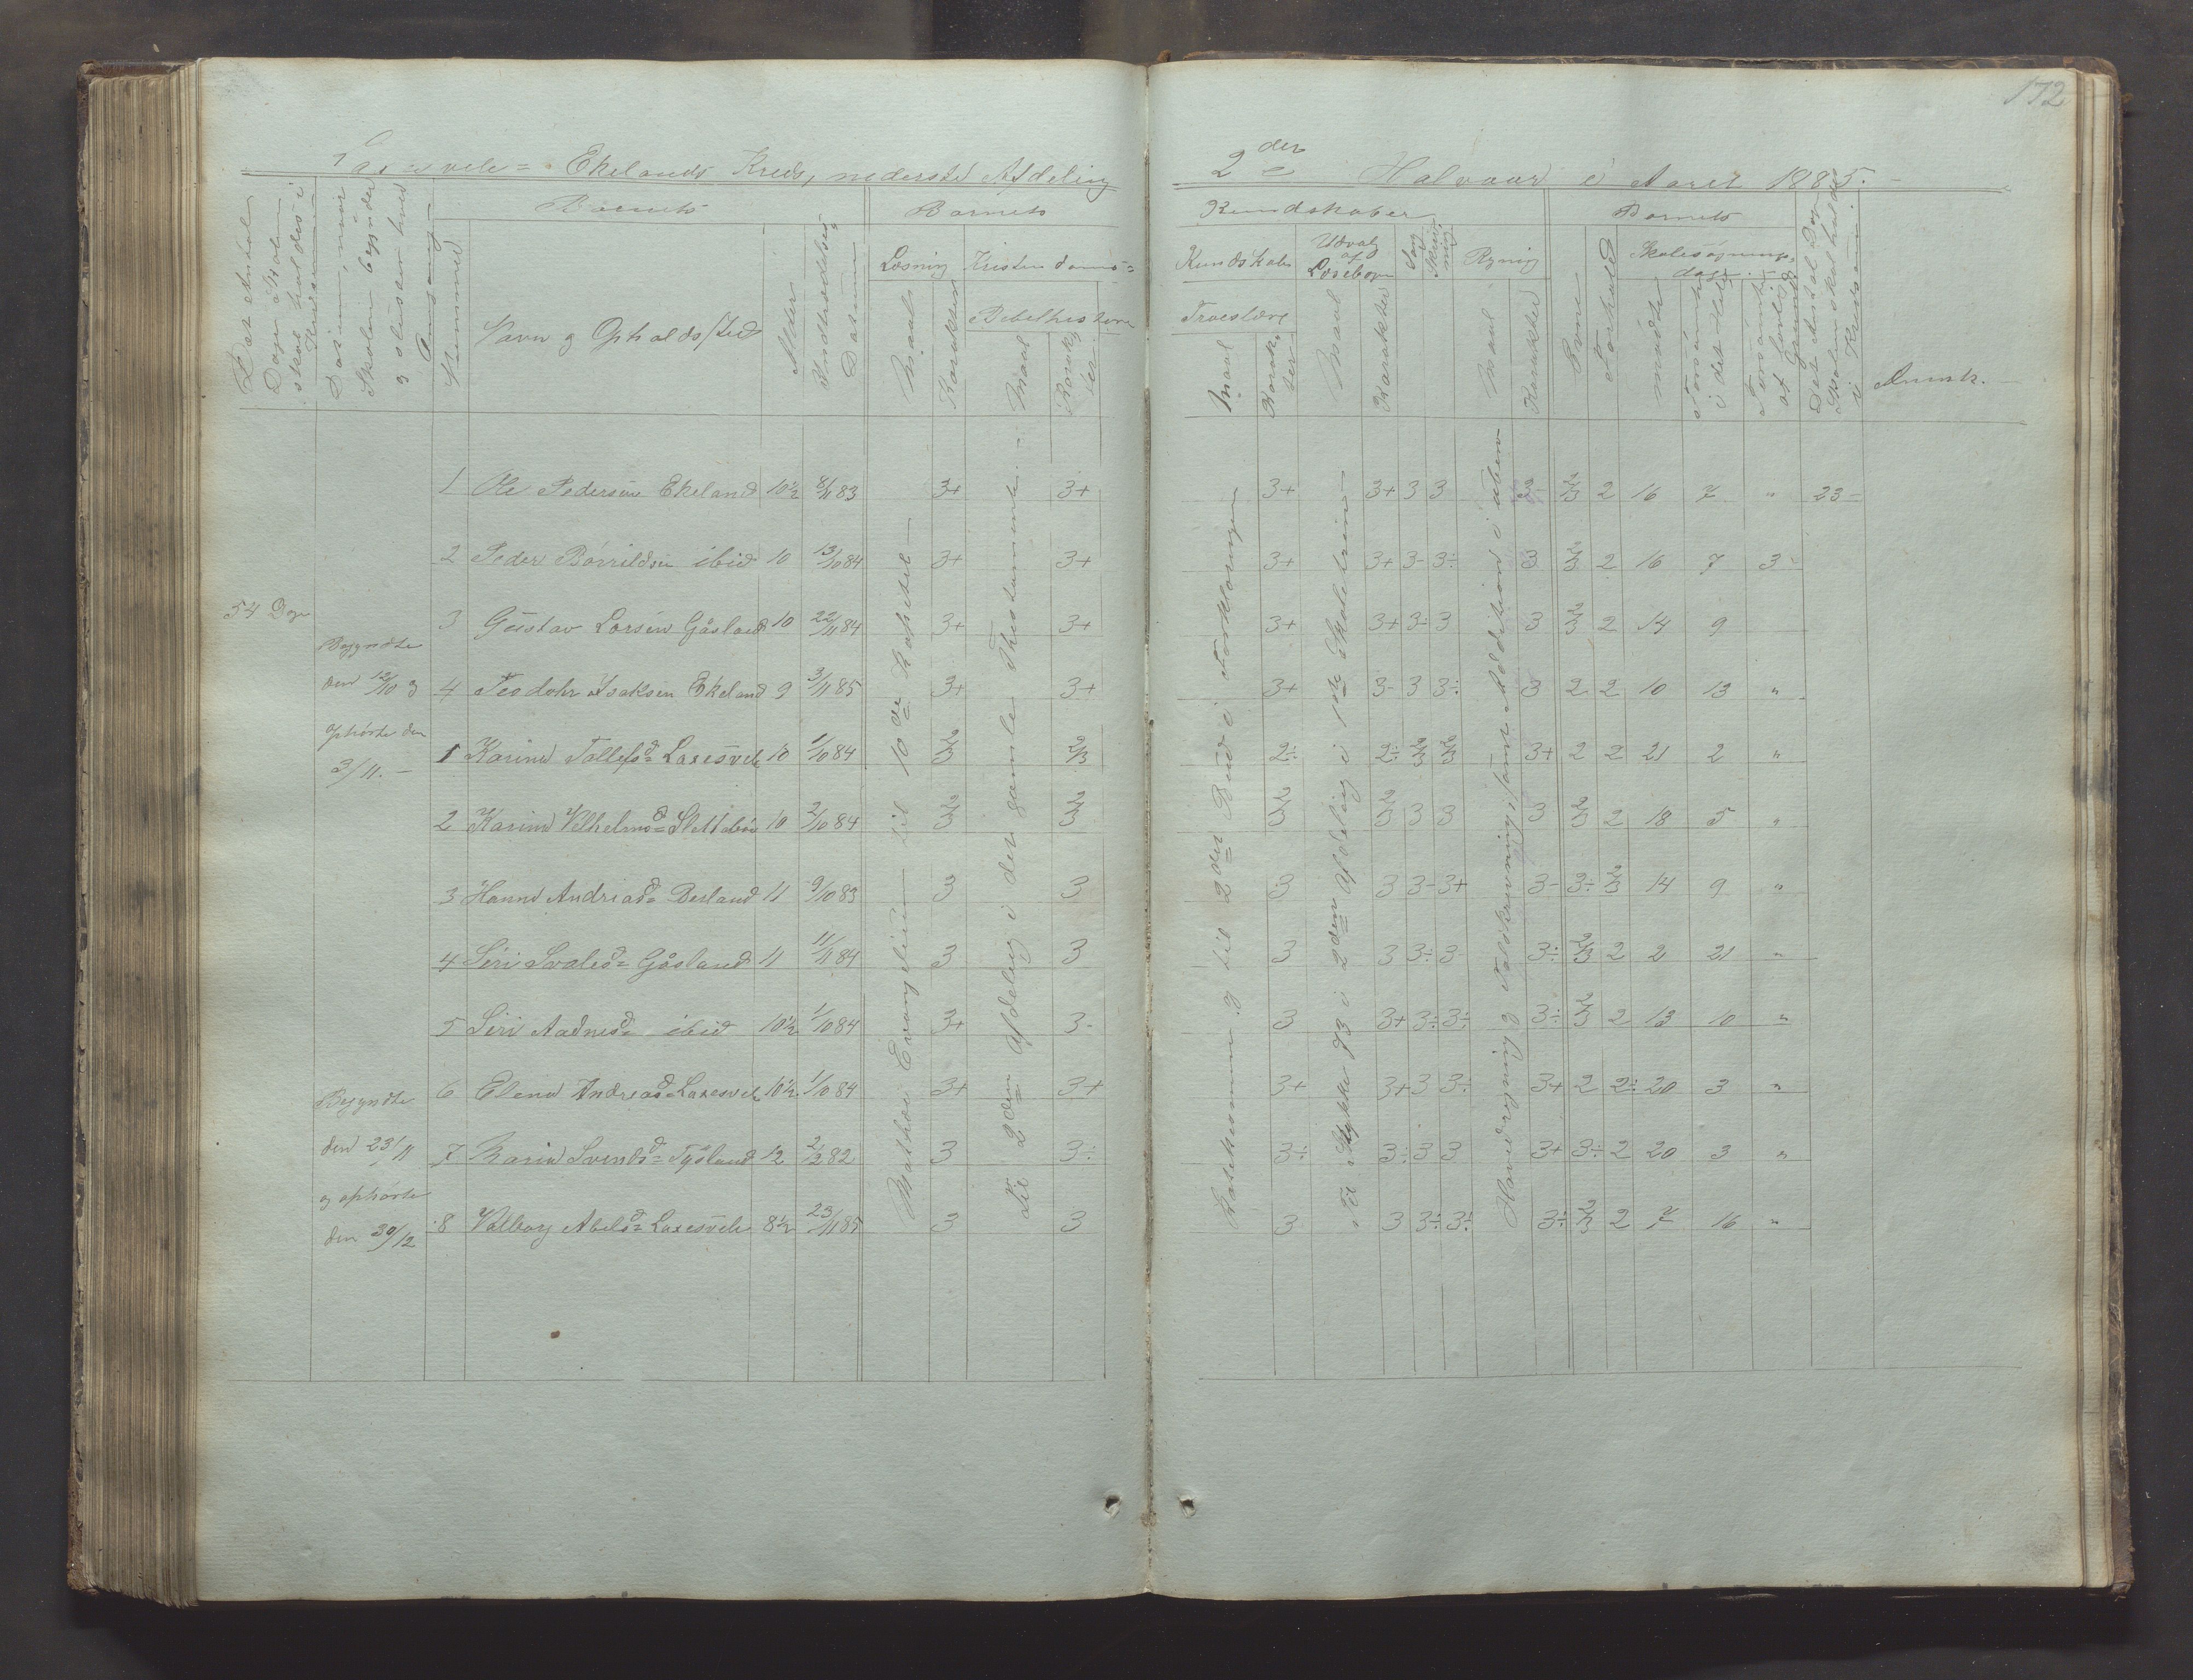 172
Laxesvele = Ekelands Kreds, nederste Afdeling
2den Halvaar i Aaret 1885.
Det Antal Dage Skolen skal holdes i Kredsen
Datum, naar Skolen begynder og slutter hver Omgang
Nummer
Barnets
Navn og Opholdssted
Alder
Indtrædelses Datum
Barnets
Læsning
Maal
Karakter
Kristendoms=
Bibelhistorie
Maal
Karakter
Kundskaber
Kundskabs
Troeslære
Maal
Karakter
Udvalg af Læsebogen
Maal
Karakter
Sang
Skrivning
Regning
Maal
Karakter
Barnets
Evne
Forhold
Skolesøgnings-dage
mødte
forsømte i det hele
forsømte af lovlig Grund
Det Antal Dage Skolen skal holdes i Kredsen
Anmk.
54 Dage
Begyndte den 12/10 og ophørte den 3/11. -
Begyndte den 23/11 og ophørte den 30/12
Mathæi Evangelium til 10de Kapitel
Til 2den Afdeling i det gamle Thestamente
Katekismen og til 2det Bud i Forklaringen
Til Stykke 73 i 2den Afdeling i 1ste Skoletrin
Hovedregning og Talskrivning, samt Addition i uben.
1 Ole Pedersen Ekeland 10½ 8/11 83 3+ 3+ 3+ 3+ 3 3 2/3 2/3 2 16 7 " 23
2 Peder Børrildsen ibid 10 13/10 84 3+ 3+ 3+ 3+ 3- 3÷ 3 2/3 2 16 7 3
3 Gustav Larsen Gåsland 10 22/11 84 3+ 3+ 3+ 3+ 3÷ 3 3 2/3 2 14 9
4 Teodohr Isaksen Ekeland 9 3/11 85 3+ 3+ 3+ 3- 3 3÷ 3 2 2 10 13 "
1 Karine Tollefsd= Laxesvele 10 1/10 84 2/3 2/3 2÷ 2÷ 2/3 2/3 3+ 2 2 21 2 "
2 Karine Vilhelmsd= Slettebø 10 2/10 84 2/3 2/3 2/3 2/3 3 3 3 2/3 2 18 5 "
3 Hanne Andriasd= Desland 11 9/10 83 3 3 3 3 3- 3+ 3- 3÷ 2/3 14 9 "
4 Siri Svalesd= Gåsland 11 11/11 84 3 3 3 3 3÷ 3 3÷ 2/3 2 2 21 "
5 Siri Aadnesd= ibid 10½ 1/10 84 3+ 3- 3 3+ 3÷ 3÷ 3÷ 2/3 2 13 10 "
6 Elene Andreasd= Laxesvele 10½ 1/10 84 3+ 3+ 3+ 3+ 3 3÷ 3+ 2 2÷ 20 3 "
7 Karin Svendsd= Tysland 12 2/2 82 3 3÷ 3÷ 3÷ 3 3 3+ 3÷ 2 20 3 "
8 Valborg Abelsd= Laxesvele 8½ 23/11 85 3 3 3 3 3÷ 3÷ 3÷ 2/3 2 7 16 "